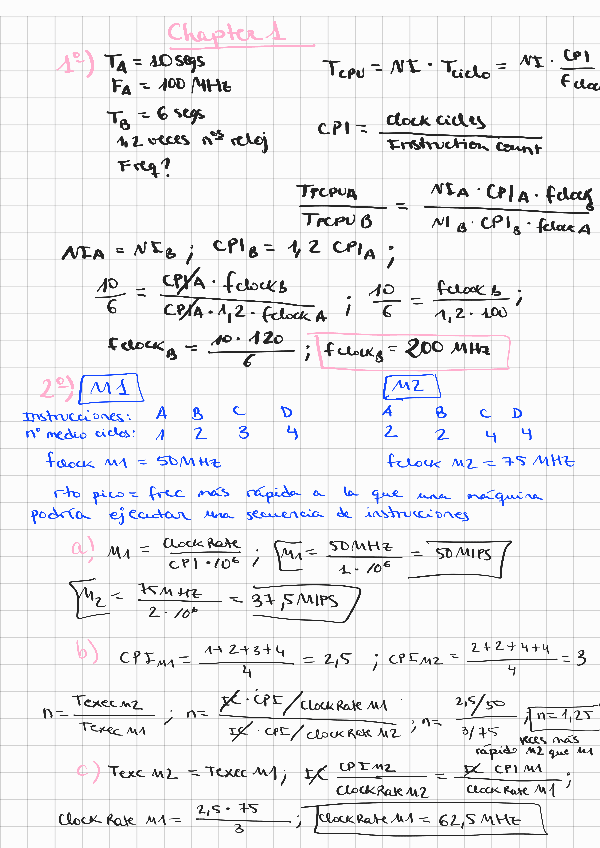 Chapter 1
1º) T_A = 10 segs
F_A = 100 MHz
T_B = 6 segs
1,2 veces nºs reloj
Freq?
T_CPU = NI · T_ciclo = NI · CPI / Fclock
CPI = clock cicles / Instruction count
T_PCPUA / T_PCPUB = NI_A · CPI_A · fclock_B / NI_B · CPI_B · fclock_A
NI_A = NI_B ; CPI_B = 1,2 CPI_A ;
10/6 = CPI_A · fclock_B / CPI_A · 1,2 · fclock_A ; 10/6 = fclock_B / 1,2 · 100 ;
fclock_B = 10 · 120 / 6 ; fclock_B = 200 MHz
2º) M1 M2
Instrucciones: A B C D A B C D
nº medio ciclos: 1 2 3 4 2 2 4 4
fclock M1 = 50MHz fclock M2 = 75 MHz
rto pico = frec más rápida a la que una máquina
podría ejecutar una secuencia de instrucciones
a) M1 = ClockRate / CPI · 10⁶ ; M1 = 50MHz / 1 · 10⁶ = 50MIPS
M2 = 75MHz / 2 · 10⁶ = 37,5MIPS
b) CPI_M1 = 1+2+3+4 / 4 = 2,5 ; CPI_M2 = 2+2+4+4 / 4 = 3
n = Texec M2 / Texec M1 ; n = IC · CPI / Clock Rate M1 / IC · CPI / Clock Rate M2 ; n = 2,5/50 / 3/75 ; n = 1,25
veces más
rápido M2 que M1
c) Texc M2 = Texec M1 ; IC CPI M2 / Clock Rate M2 = IC CPI M1 / Clock Rate M1 ;
Clock Rate M1 = 2,5 · 75 / 3 ; Clock Rate M1 = 62,5 MHz